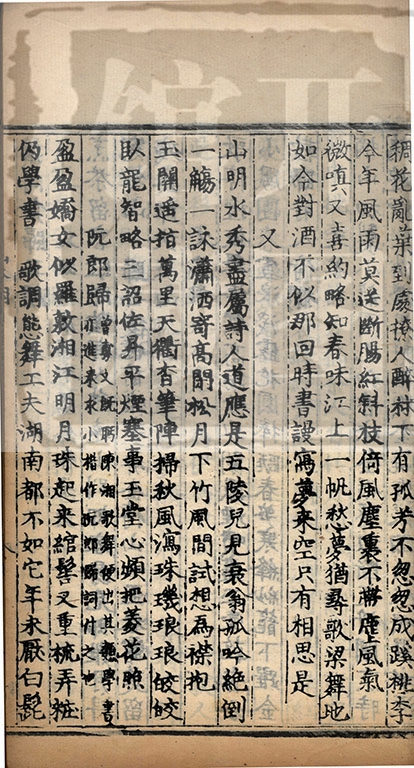 稠花亂葉到處撩人醉林下有孤芳不忽忽成蹊桃李
今年風雨莫送斷腸紅斜枝倚風塵裏不帶塵風氣
微嗔又喜約略知春味江上一帆愁夢猶尋歌梁舞地
如今對酒不似那回時書謾寫夢來空只有相思是
又
山明水秀盡屬詩人道應是五陵兒見衰翁孤吟絕倒
一觴一詠瀟洒寄高閒松月下竹風間試想為襟抱
玉關遙指萬里天衢杳筆陣掃秋風瀉珠璣琅琅皎皎
臥龍智略三詔佐昇平煙塞事玉堂心頻把菱花照
阮郎歸 曾旉文既盻陳湘歌舞便出其類學書亦進來求小楷作阮郎歸詞付之也
盈盈嬌女似羅敷湘江明月珠起來綰髻又重梳弄粧
仍學書 歌調態舞工夫湖南都不如它年未厭白髭